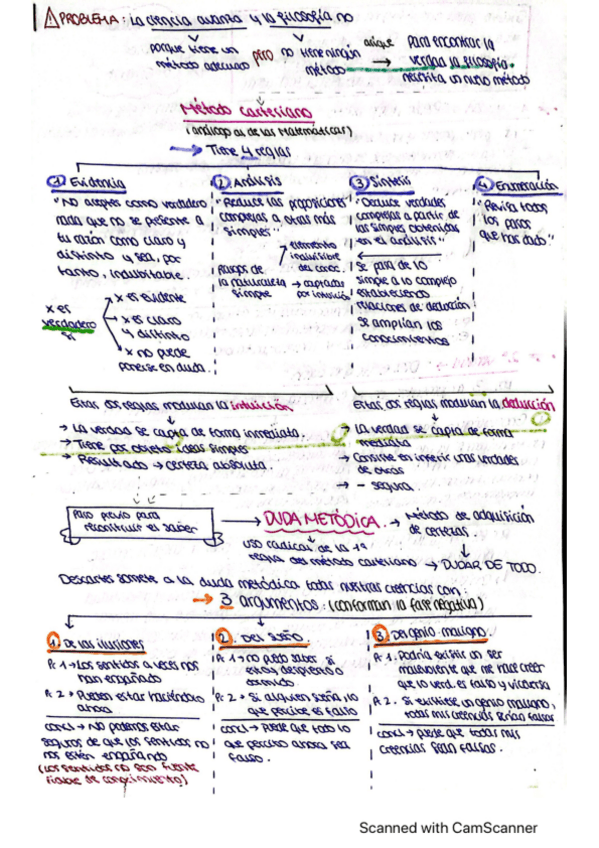 ⚠ PROBLEMA: La ciencia avanza y la filosofía no
porque tiene un
método adecuado
pero
no tiene ningún
método
→
para encontrar la
verdad la filosofía
necesita un nuevo método
Método cartesiano
(análogo al de las Matemáticas)
→ Tiene 4 reglas
1 Evidencia
"No aceptes como verdadero
nada que no se presente a
tu razón como claro y
distinto y sea, por
tanto, indubitable.
x es
verdadero
si
x es evidente
x es claro
y distinto
x no puede
ponerse en duda.
2 Análisis
"Reduce las proposiciones
complejas a otras más
simples"
elemento
indivisible
del conoc.
la naturaleza → captadas
simple por intuición
3 Síntesis
"Deduce verdades
complejas a partir de
las simples obtenidas
en el análisis"
Se pasa de lo
simple a lo complejo
estableciendo
relaciones de deducción
Se amplían los
conocimientos
4 Enumeración
"Revisa todos
los pasos
que has dado"
Estas dos reglas modulan la intuición
→ La verdad se capta de forma inmediata.
→ Tiene por objeto ideas simples
→ Resultado → certeza absoluta.
Estas dos reglas modulan la deducción
→ La verdad se capta de forma
mediata
→ Consiste en inferir unas verdades
de otras
→ - segura.
Paso previo para
reconstruir el saber
→ DUDA METÓDICA → Método de adquisición
de certezas.
uso radical de la 1ª
regla del método cartesiano → DUDAR DE TODO.
Descartes somete a la duda metódica todas nuestras creencias con:
→ 3 argumentos: (conforman la fase negativa)
1. De las ilusiones
P. 1 → Los sentidos a veces nos
han engañado
P. 2 → Pueden estar haciéndolo
ahora
concl → No podemos estar
seguros de que los sentidos no
nos estén engañando
(Los sentidos no son fuente
fiable de conocimiento)
2. Del sueño
P. 1 → no puedo saber si
estoy despierto o
dormido
P. 2 → Si alguien sueña, lo
que percibe es falso
concl → puede que todo lo
que percibo ahora sea
falso.
3. Del genio maligno.
P. 1. Podría existir un ser
malevolente que me hace creer
que lo verd. es falso y viceversa
P. 2. Si existiese un genio maligno,
todas mis creencias serían falsas
concl → puede que todas mis
creencias sean falsas.
Scanned with CamScanner